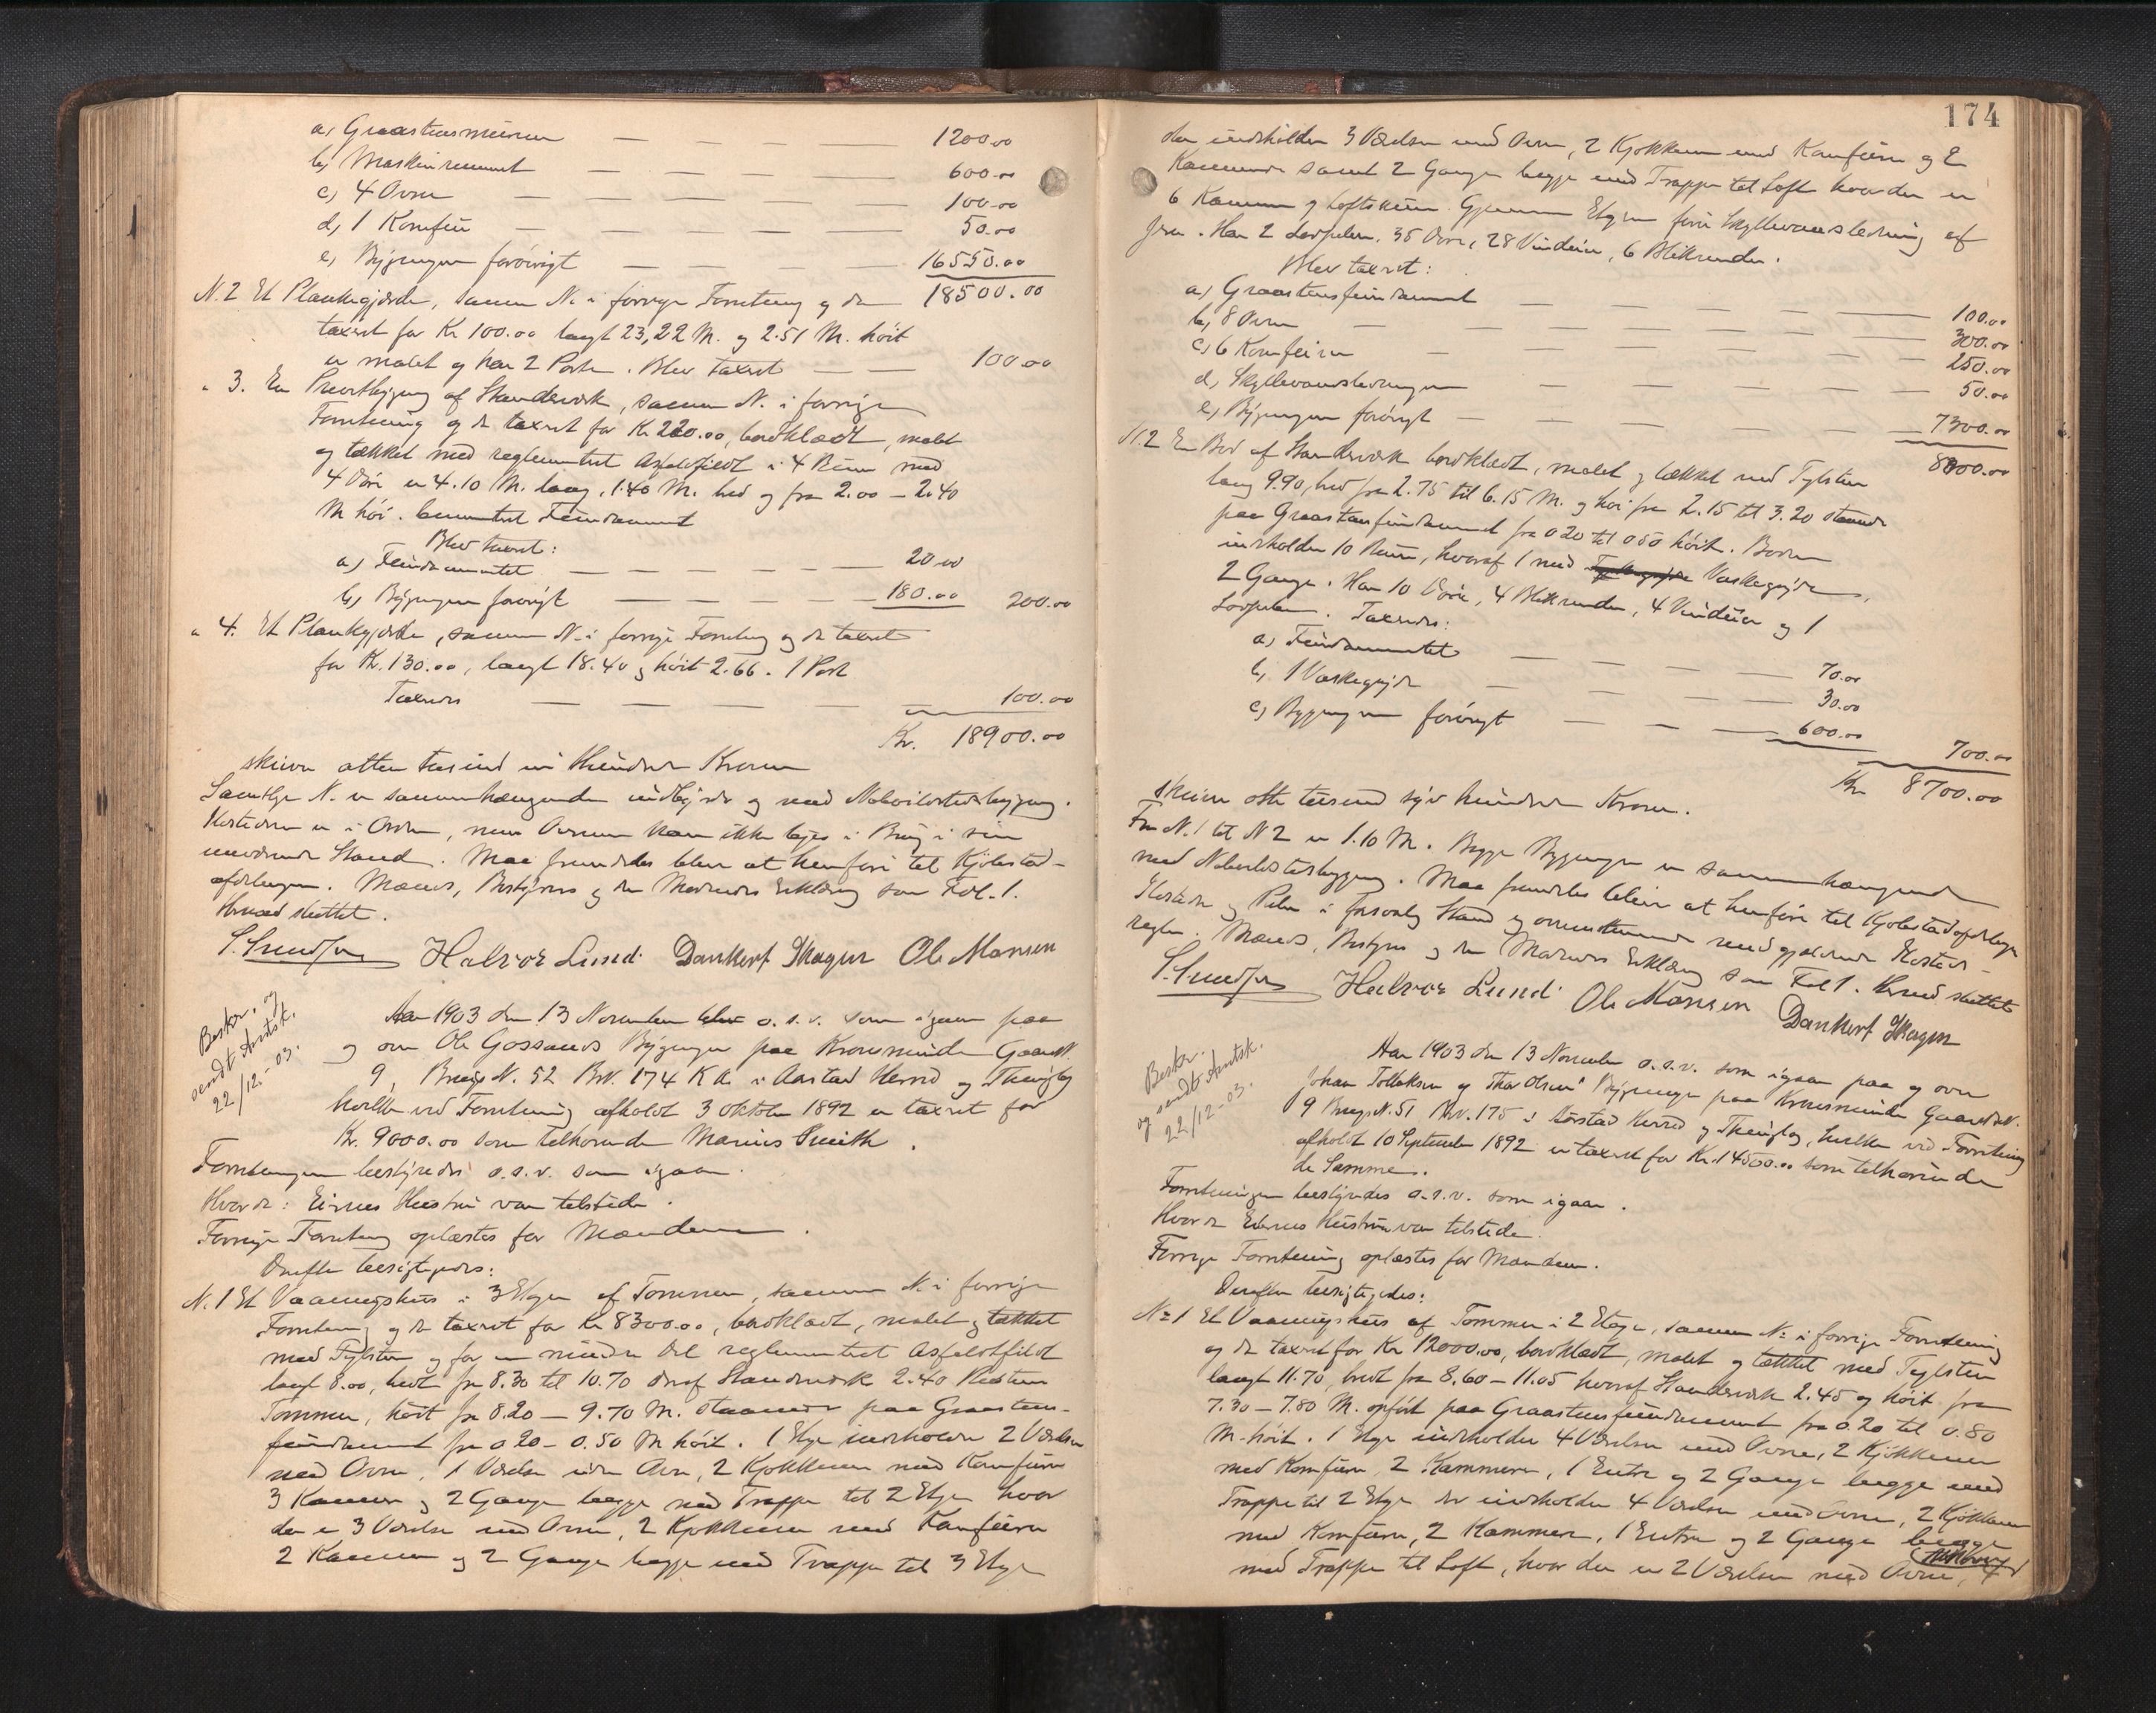 a, Graastensmuren — — — — 1200.00
b, Maskinrummet — — — — 600.00
c, 4 Ovne — — — — 100.00
d, 1 Komfur — — — — 50.00
e, Bygningen forøvrigt — — — 16550.00
18500.00
N. 2 Et Plankegjærde, samme N. i forrige Forretning og der
taxeret for Kr 100.00 langt 23,22 M. og 2.51 M. høit
er malet og har 2 Porte. Blev taxeret — — 100.00
" 3. En Privetbygning af Standerværk, samme N. i forrige
Forretning og der taxeret for Kr 220.00, bordklædt, malet
og tækket med reglementeret Asfaltfildt i 4 Rum med
4 Døre er 4.10 M. lang, 1.40 M. bred og fra 2.00 – 2.40
M høi. Cementeret Fundament
Blev taxeret:
a) Fundamentet — — — — 20.00
b, Bygningen forøvrigt — — — 180.00 200.00
" 4. Et Plankegjærde, samme N. i forrige Forretning og der taxeret
for Kr. 130.00, langt 18.40 og høit 2.66. 1 Port
Taxeredes — — — — 100.00
Kr. 18900.00
skriver atten tusind ni Hundrede Kroner
Samtlige N. er sammenhængende indbyrdes og med Naboildstedsbygning.
Ildstederne er i Orden, men Ovnene kan ikke tages i Brug i sin
nuværende Stand. Maa fremdeles blive at henføre til Kjøbstad-
afdelingen. Mænds, Bestyrers og den Mødendes Erklæring som Fol. 1.
Hermed sluttet.
Halvor Lund Dankert Skagen Ole Monsen
Beskr. og
sendt Amtsk.
22/12-03.
Aar 1903 den 13 November blev o.s.v. som igaar paa
og over Ole Gossands Bygninger paa Kronsminde Gaards N.
9, Brugs N. 52 Br.N. 174 K a. i Aarstad Herred og Thinglag
hvilke ved Forretning afholdt 3 Oktober 1892 er taxeret for
Kr. 9000.00 som tilhørende Marius Smith.
Forretningen bestyredes o.s.v. som igaar.
Hvor da: Eierens Hustru var tilstede.
Forrige Forretning oplæstes for Mændene.
Derefter besigtigedes:
N. 1 Et Vaaningshus i 3 Etager af Tømmer, samme N. i forrige
Forretning og der taxeret for Kr 8300.00, bordklædt, malet og tækket
med Teglsten og for en mindre Del reglementeret Asfaltfildt
langt 8.00, bredt fra 8.30 til 10.70 deraf Standerværk 2.40 Resten
Tømmer, høit fra 8.20 – 9.70 M. staaende paa Graastens-
fundament fra 0 20 – 0.50 M høit. 1 Etage indeholder 2 Værelser
med Ovne, 1 Værelse uden Ovn, 2 Kjøkkener med Komfurer
3 Kammer og 2 Gange begge med Trappe til 2 Etage hvor
der er 3 Værelser med Ovne, 2 Kjøkkener med Komfurer
2 Kammer og 2 Gange begge med Trappe til 3 Etage
174
der indeholder 3 Værelser med Ovne, 2 Kjøkkener med Komfurer og 2
Kammere samt 2 Gange begge med Trappe til Loft hvor der er
6 Kammer og Loftsrum. Gjennem Etagerne fører Skyllevandsledning af
Jern. Har 2 Lovpiber, 35 Døre, 28 Vinduer, 6 Blikrender.
Blev taxeret:
a) Graastensfundament — — — 100.00
b, 8 Ovne — — — 300.00
c, 6 Komfurer — — — 250.00
d, Skyllevandsledningen — — — 50.00
e, Bygningen forøvrigt — — — 7300.00
8000.00
N. 2 En Bod af Standerværk bordklædt, malet og tækket med Teglsten
lang 9.90, bred fra 2.75 til 6.15 M. og høi fra 2.15 til 3.20 staaende
paa Graastensfundament fra 0 20 til 0 50 høit. Boden
indeholder 10 Rum, hvoraf 1 med Vaskegryde,
2 Gange. Har 10 Døre, 4 Blikrender, 4 Vinduer og 1
Lovpibe. Taxeredes:
a) Fundamentet — — — 70.00
b, 1 Vaskegryde — — — 30.00
c) Bygningen forøvrigt — — — 600.00
700.00
Kr 8700.00
skriver otte tusend syv hundrede Kroner.
Fra N. 1 til N 2 er 1.10 M. Begge Bygninger er sammenhængende
med Naboildstedsbygning. Maa fremdeles blive at henføre til Kjøbstadafdelingen
Ildsteder og Piber i forsvarlig Stand og overensstemmende med gjældende Ildsteds-
regler. Mænds, Bestyrers og den Mødendes Erklæring som Fol 1. Hermed sluttet
Halvor Lund Ole Monsen Dankert Skagen
Beskr.
og sendt Amtsk.
22/12-03.
Aar 1903 den 13 November o.s.v. som igaar paa og over
Johan Tollaksen og Thor Olsens Bygninger paa Kronsminde Gaards N.
9 Brugs N. 51 Br.N. 175 i Aarstad Herred og Thinglag, hvilke ved Forretning
afholdt 10 September 1892 er taxeret for Kr. 14500.00 som tilhørende
de Samme.
Forretningen bestyredes o.s.v. som igaar.
Hvor da Eiernes Hustru var tilstede.
Forrige Forretning oplæstes for Mændene.
Derefter besigtigedes:
No 1 Et Vaaningshus af Tømmer i 2 Etager, samme No i forrige Forretning
og der taxeret for Kr 12000.00, bordklædt, malet og tækket med Teglsten
langt 11.70, bredt fra 8.60 – 11.05 hvoraf Standerværk 2.45 og høit fra
7.30 – 7.80 M. opført paa Graastensfundament fra 0.20 til 0.80
M høit. 1 Etage indeholder 4 Værelser med Ovne, 2 Kjøkkener
med Komfurer, 2 Kammere, 1 Entre og 2 Gange begge med
Trappe til 2 Etage der indeholder 4 Værelser med Ovne, 2 Kjøkkener
med Komfurer, 2 Kammer, 1 Entre og 2 Gange begge
med Trappe til Loft, hvor der er 2 Værelser med Ovne, 4